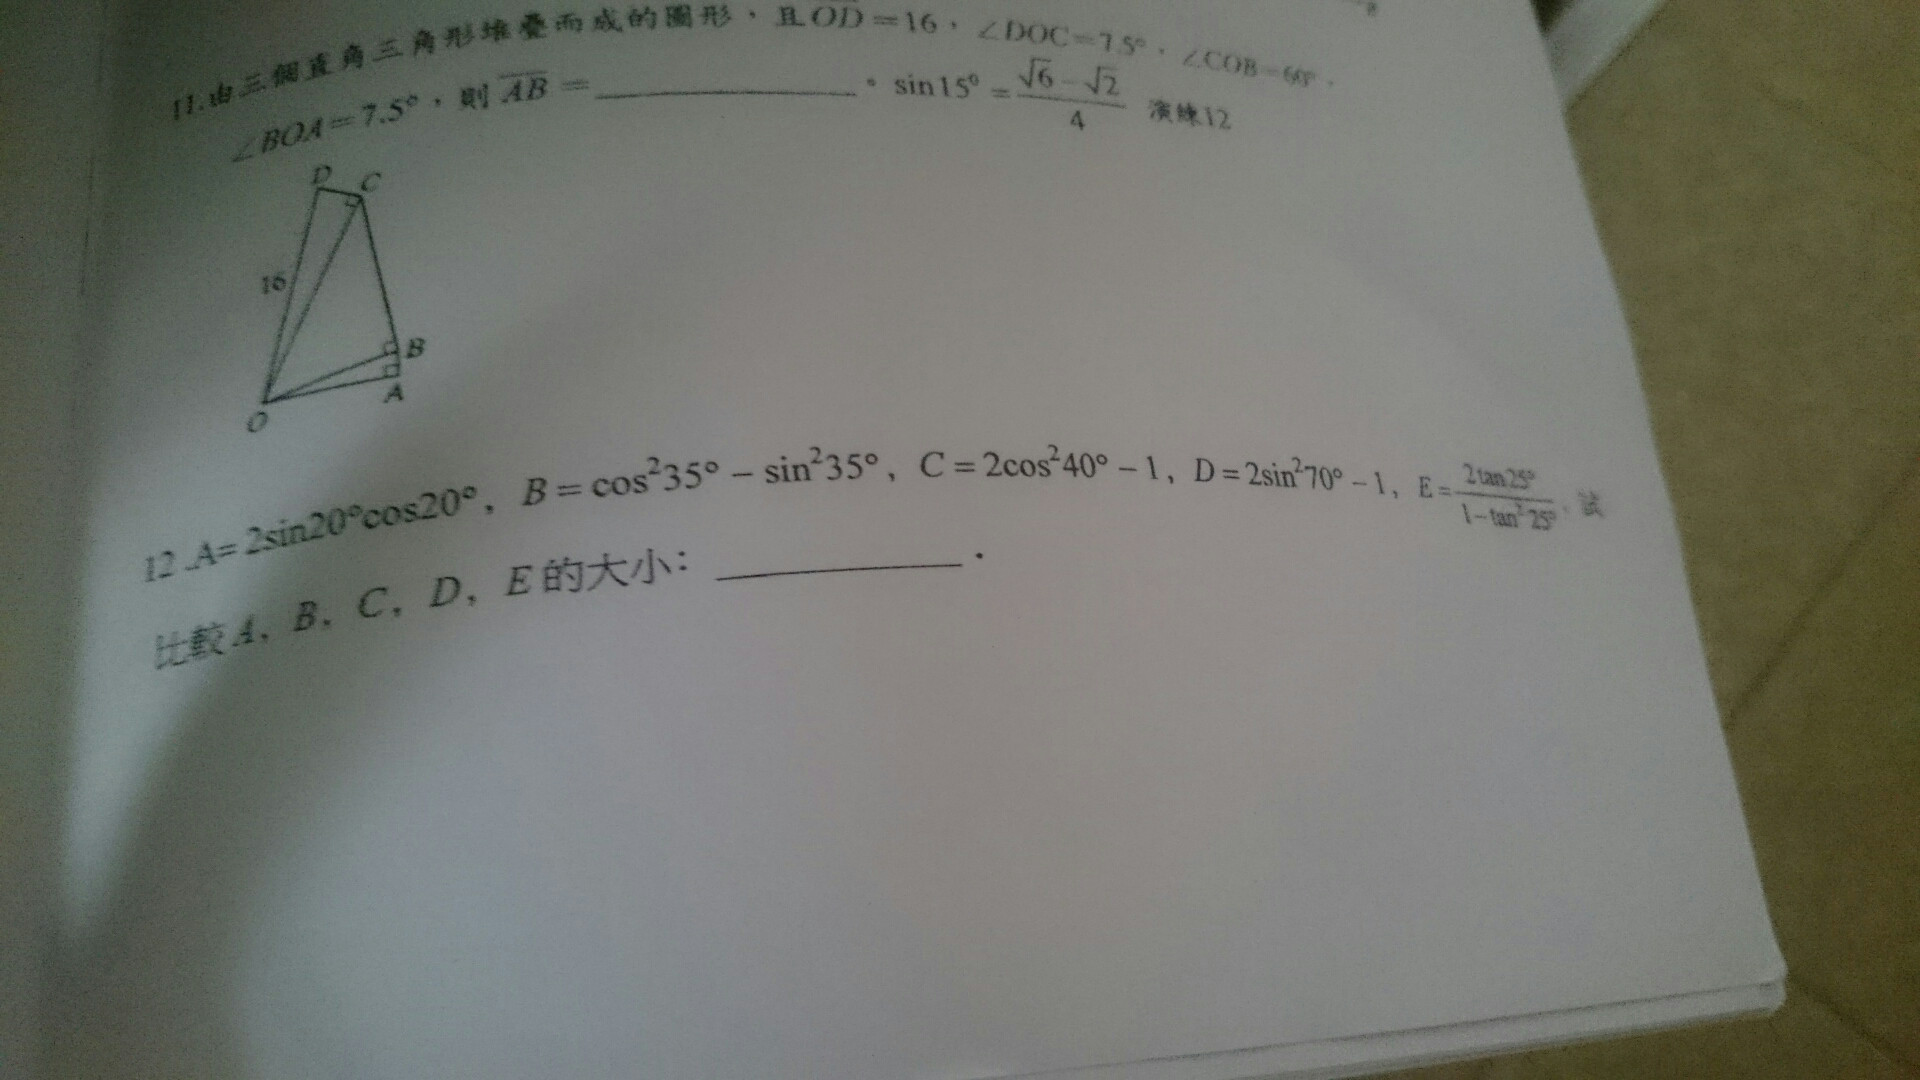 11.由三個直角三角形堆疊而成的圖形，且OD=16，∠DOC=7.5°，∠COB=60°，
∠BOA=7.5°，則AB=__________。sin15°=(√6-√2)/4 演練12
D C
16
B
A
O
12.A=2sin20°cos20°, B=cos²35°-sin²35°, C=2cos²40°-1, D=2sin²70°-1, E=2tan25°/(1-tan²25°), 試
比較A, B, C, D, E的大小：__________.